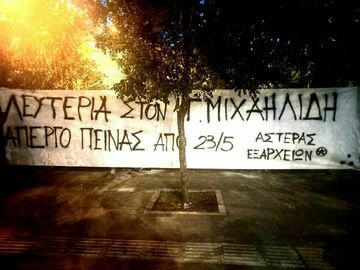 ΛΕΥΤΕΡΙΑ ΣΤΟΝ Γ. ΜΙΧΑΗΛΙΔΗ
ΑΠΕΡΓΟ ΠΕΙΝΑΣ ΑΠΟ 23/5
ΑΣΤΕΡΑΣ
ΕΞΑΡΧΕΙΩΝ